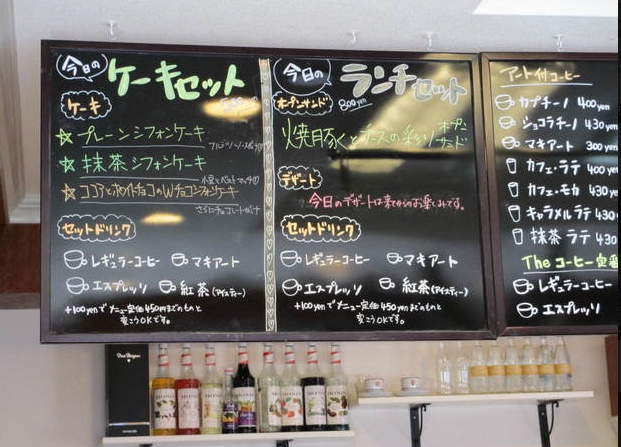 今日の
ケーキセット
ケーキ
☆プレーンシフォンケーキ
☆抹茶シフォンケーキ
☆ココアとホワイトチョコのWチョコシフォンケーキ
セットドリンク
レギュラーコーヒー マキアート
エスプレッソ 紅茶(アイスティー)
+100yenでメニュー定価450円までのものと
変こうOKです。
今日の
ランチセット
800yen
オープンサンド
焼豚とチーズの彩りオープンサンド
デザート
今日のデザートは来てからのお楽しみです。
セットドリンク
レギュラーコーヒー マキアート
エスプレッソ 紅茶(アイスティー)
+100yenでメニュー定価450yenまでのものと
変こうOKです。
アート付コーヒー
カプチーノ 400yen
ショコラチーノ 430yen
マキアート 300ye
カフェ・ラテ 400ye
カフェ・モカ 430ye
キャラメルラテ 430
抹茶ラテ 430
The コーヒー定番
レギュラーコーヒー
エスプレッソ
MONIN